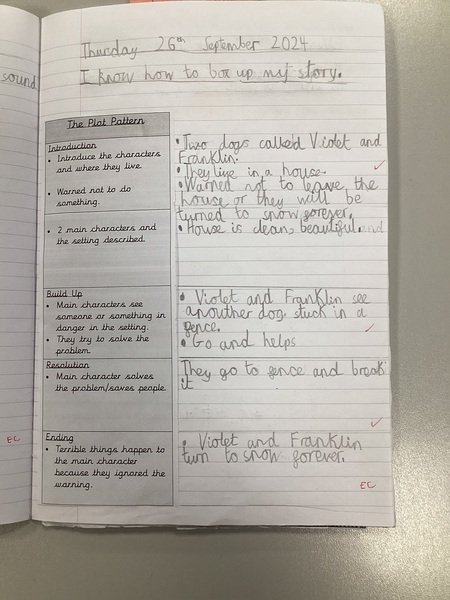 sound
Thursday 26th September 2024
I know how to box up my story.
The Plot Pattern
Introduction
• Introduce the characters
and where they live.
• Warned not to do
something.
• Two dogs called Violet and
Franklin.
• They live in a house.
• Warned not to leave the
house or they will be
turned to snow forever.
• 2 main characters and
the setting described.
• House is clean, beautiful. and
Build Up
• Main characters see
someone or something in
danger in the setting.
• They try to solve the
problem.
• Violet and Franklin see
anouther dog stuck in a
fence.
• Go and helps
Resolution
• Main character solves
the problem/saves people.
They go to fence and break
it
Ending
• Terrible things happen to
the main character
because they ignored the
warning.
• Violet and Franklin
turn to snow forever.
EC
EC